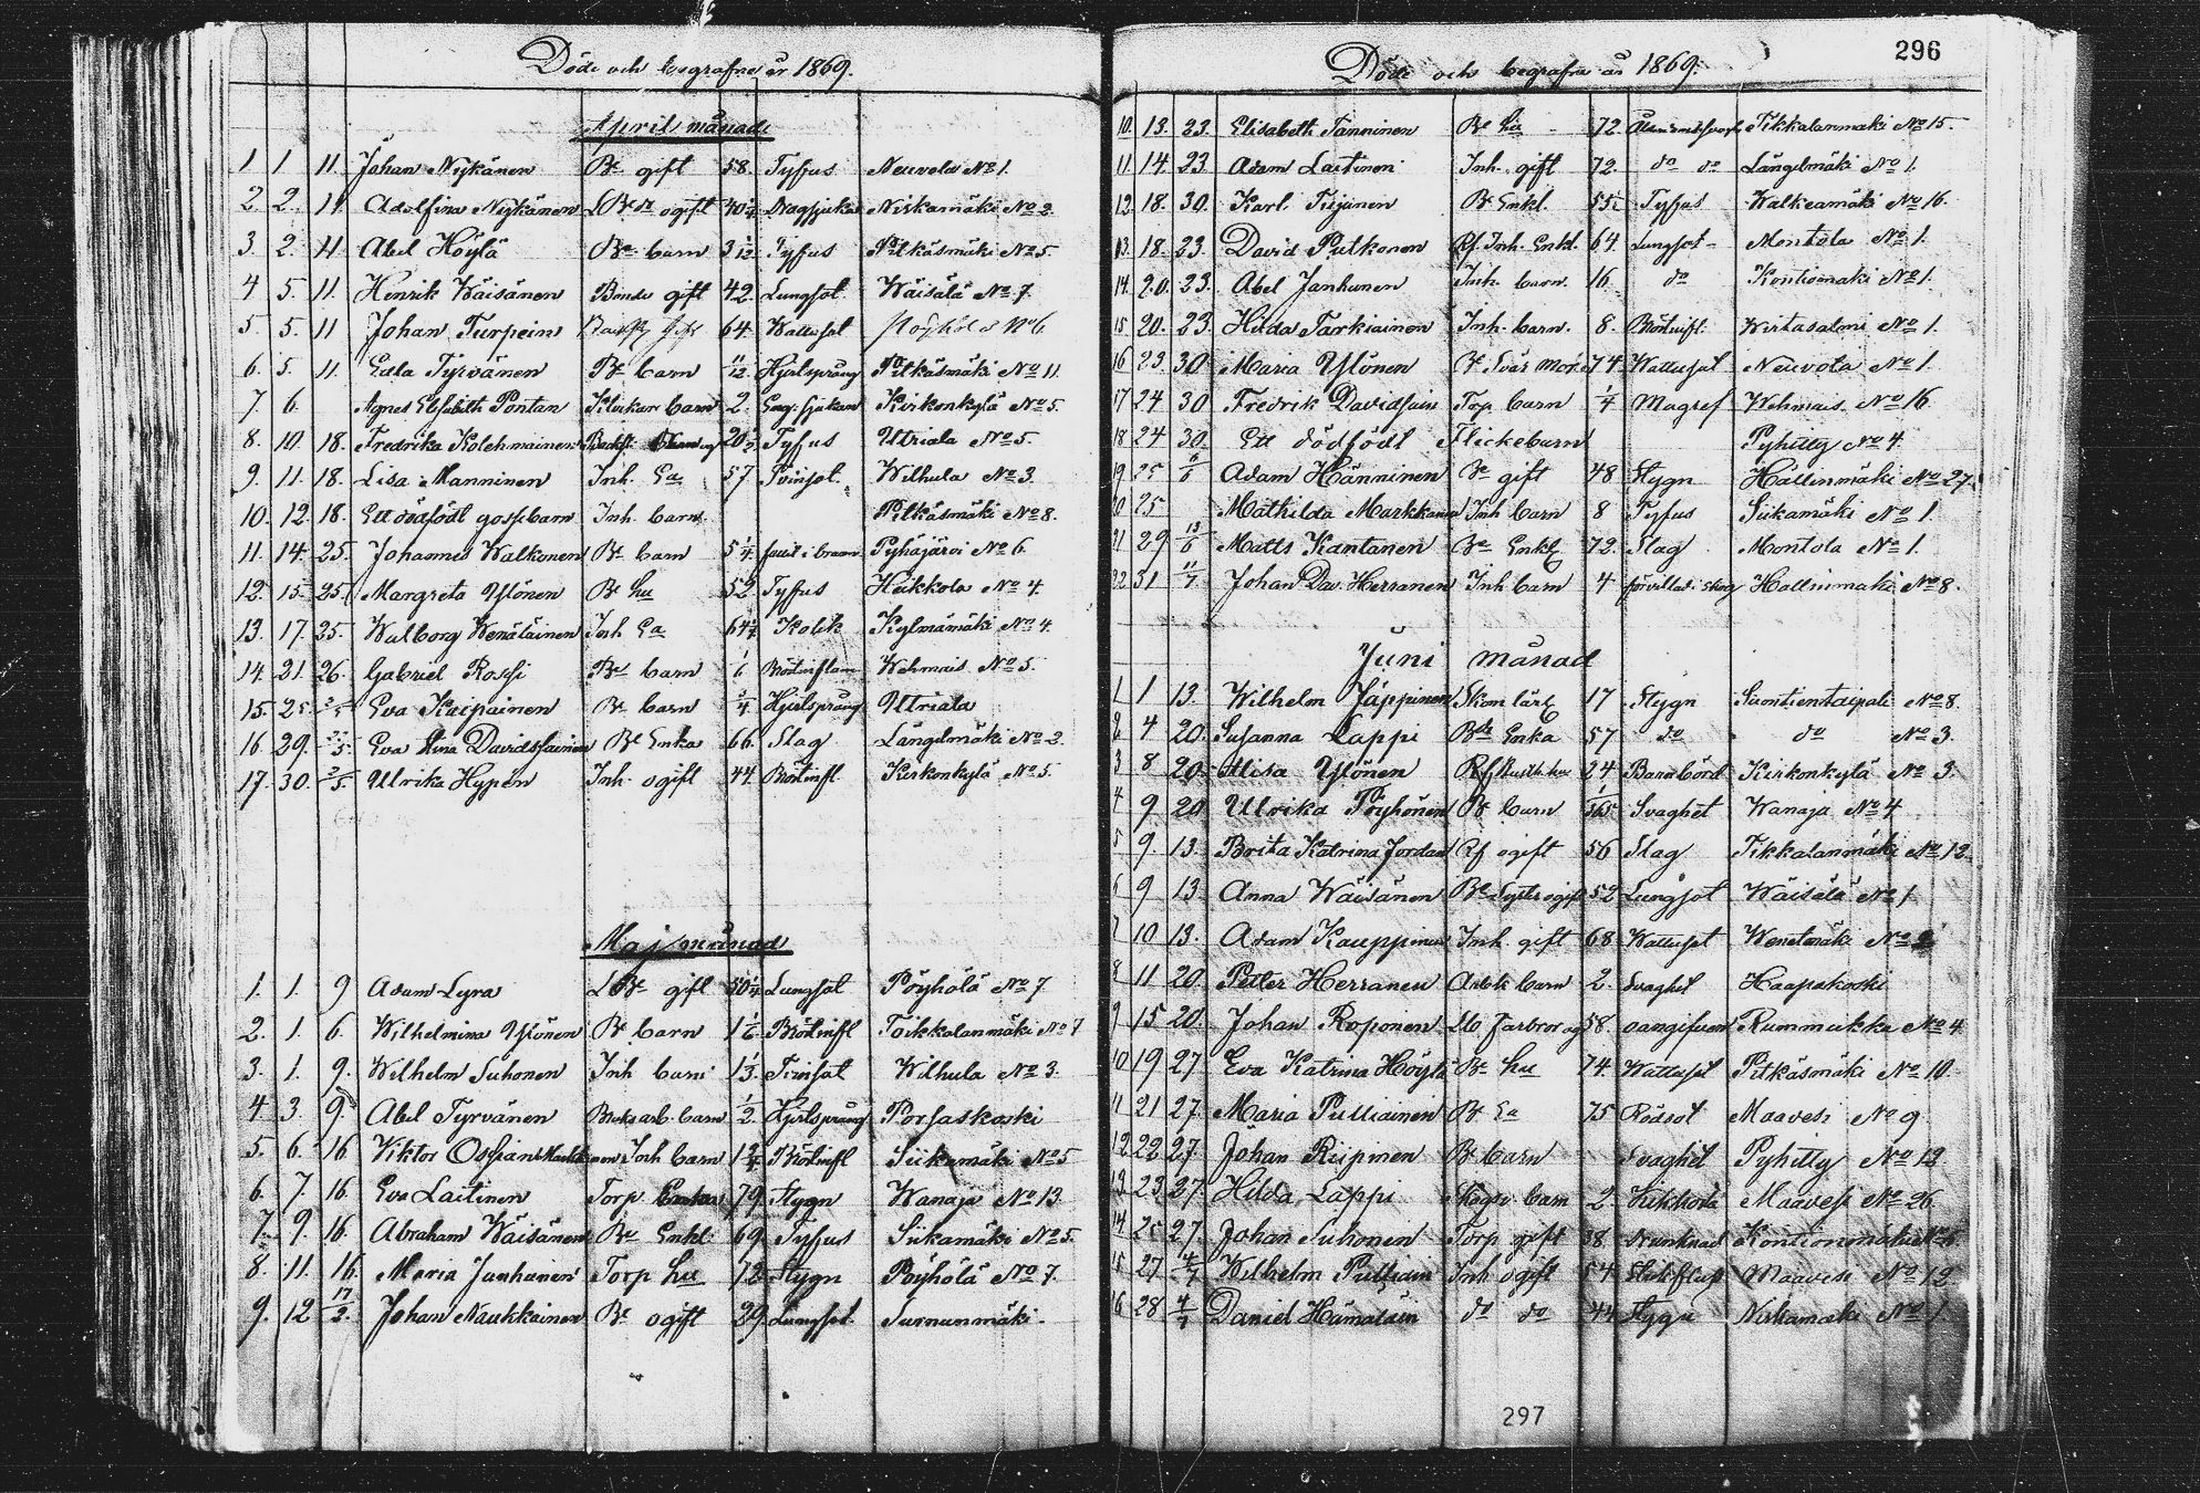 Döde och begrafne år 1869.
April månad
1 1 11. Johan Nykänen Be ogift 58. Tyfus Neuvola No 1.
2. 2. 11. Adolfina Nykänen ogift Niskamäki No 2.
3. 2. 11 Abel Höylä Be barn 3 Tyfus Pitkäsmäki No 5.
4 5. 11. Henrik Wäisänen Bonde gift 42. Lungsot. Wäisälä No 7.
5. 5. 11 Johan Turpein 64. Wattusot No 6
6. 5. 11. Edla Tyrvänen Be barn 11/12 Hjertsprång Pitkäsmäki No 11.
7. 6. Agnes Elisabeth Pontan barn 2. Kirkonkylä No 5.
8. 10. 18. Fredrika Kolehmainen Tyfus Utriala No 5.
9. 11. 18. Lisa Manninen Inh. Ea 57 Tvinsot. Wilhula No 3.
10. 12. 18. Ett dödfödt gossebarn Inh. barn. Pitkäsmäki No 8.
11. 14. 25. Johannes Walkonen Be barn 5 1/4 Pyhäjärvi No 6.
12. 15. 25. Margreta Ylönen Be hu 52 Tyfus Heikkola No 4.
13. 17. 25. Walborg Wenäläinen Inh Ea 64 Kolik Kylmämäki No 4.
14. 21. 26. Gabriel Rossi Be barn 1/6 Bröstinflam Wehmais No 5.
15. 25. Eva Kaipainen Be barn 3/4 Hjertsprång Utriala
16. 29. Eva Stina Davidsainen Be Enka 66. Slag Längelmäki No 2.
17. 30. 2/5. Ulrika Hypén Inh. ogift 44. Bröstinfl. Kirkonkylä No 5.
Maj månad
1. 1. 9 Adam Lyra LBe gift 50 1/4 Lungsot Pöyhölä No 7
2. 1. 6. Wilhelmina Ylönen Be barn 1 1/6 Bröstinfl Toikkalanmäki No 7
3. 1. 9. Wilhelm Suhonen Inh barn Tvinsot Wilhula No 3.
4. 3. 9. Abel Tyrvänen Bruksarb. barn 1/2. Hjertsprång Porsaskoski
5. 6. 16 Viktor Ossian Inh barn Bröstinfl Siikamäki No 5
6. 7. 16. Eva Laitinen Torp Enka 79. Stygn Wanaja No 13.
7. 9. 16. Abraham Wäisänen Be Enkl. 69. Tyfus Siikamäki No 5.
8. 11. 16. Maria Janhunen Torp hu 72. Stygn Pöyhölä No 7.
9. 12 Johan Naukkainen Be ogift 29. Lungsot. Surnunmäki.
Döde och begrafne år 1869.
296
10. 13. 23. Elisabeth Tanninen Be hu 72. Tikkalanmäki No 15.
11. 14. 23. Adam Laitinen Inh. gift 72. do do Längelmäki No 1.
12 18. 30. Karl Tiejunen Be Enkl. 55 Tyfus Walkeamäki No 16.
13. 18. 23. David Pulkonen Rf. Inh. Enkl. 64. Lungsot Montola No 1.
14. 20. 23. Abel Janhunen Inh. barn. 16 do Kontiomäki No 1.
15 20. 23. Hilda Tarkiainen Inh. barn. 8. Bröstinfl. Wirtasalmi No 1.
16 23. 30 Maria Ylönen Be Svär mor 74 Wattusot Neuvola No 1.
17 24 30 Fredrik Davidsain Torp barn 1/4 Magref Wehmais No 16
18 24 30. Ett dödfödt Flickebarn Pyhitty No 4.
19 25 6/6 Adam Hänninen Be gift 48 Stygn Hällinmäki No 27.
20 25 Mathilda Markkanen Inh barn 8 Tyfus Siikamäki No 1.
21 29 13/6 Matts Kantanen Be Enkl 72. Slag Montola No 1.
22 31 11/7 Johan Dav. Herranen Inh barn 4 förvillad i skog Hällinmäki No 8.
Juni månad
1 1 13. Wilhelm Jäppinen Skom lärl 17 Stygn Suontientaipale No 8.
2 4 20. Susanna Lappi Enka 57 do do No 3.
3 8 20. Ylönen 24 Barnbörd Kirkonkylä No 3.
4 9 20 Ulrika Pöyhönen Be barn 1/365 Svaghet Wanaja No 4
5 9. 13. Brita Katrina Jordan Rf ogift 56 Slag Tikkalanmäki No 12.
6 9 13. Anna Wäisänen Be Syster ogift 52 Lungsot Wäisälä No 1
7 10 13. Adam Kauppinen Inh. gift 68 Wattusot
8 11 20. Petter Herranen Arbk barn 2. Svaghet Haapakoski
9 15 20. Johan Roponen farbror og 58. Rummukka No 4
10 19 27. Eva Katrina Höylä Be hu 74. Wattusot Pitkäsmäki No 10.
11 21 27. Maria Pulliainen Be Ea 75 Rödsot Maavesi No 9.
12 22 27. Johan Riipinen Be barn Svaghet Pyhitty No 12
13 23 27. Hilda Lappi barn 2. Kikhosta Maavesi No 26.
14 25 27. Johan Suhonen Torp gift 38. drunknad
15 27 4/7 Wilhelm Pulliain Inh ogift 54 Maavesi No 12
16 28 4/7 Daniel Hämäläin do do 44 Stygn Niskamäki No 1.
297